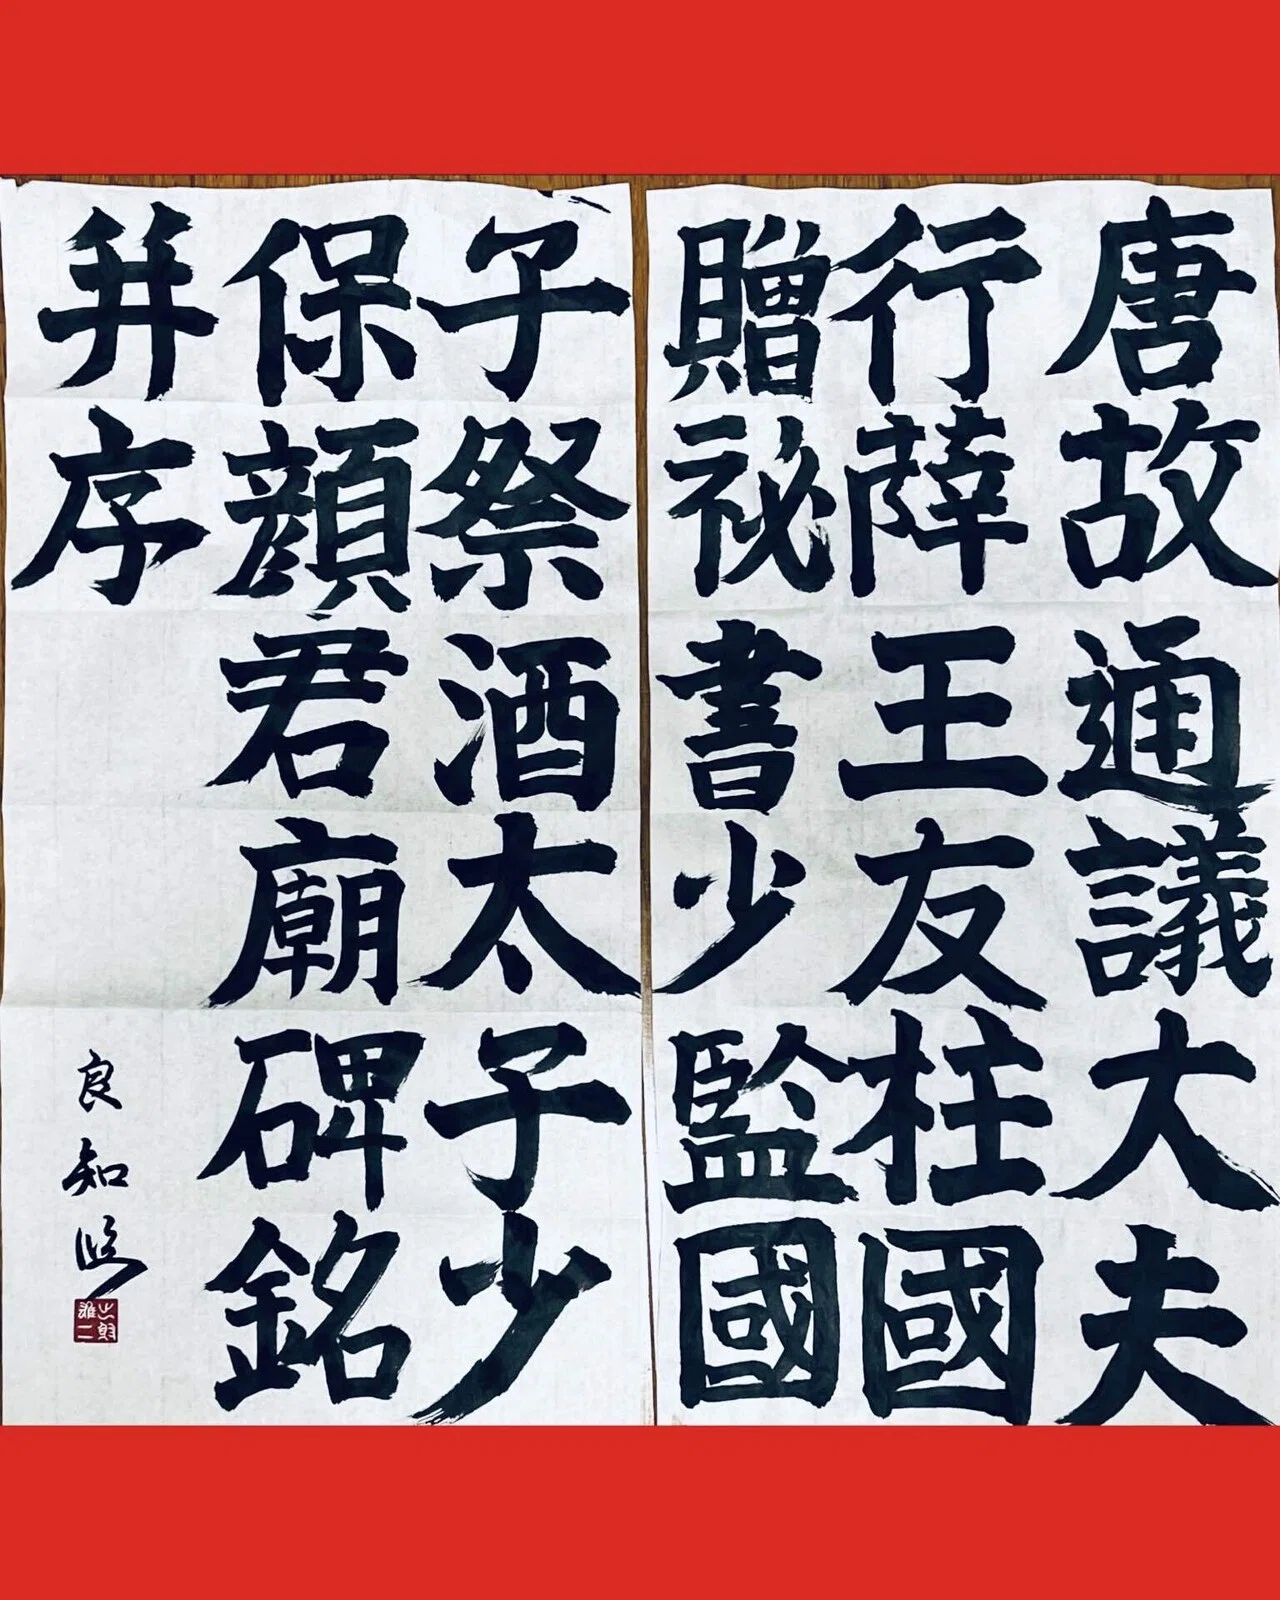 唐故通議大夫
行薛王友柱國
贈祕書少監國
子祭酒太子少
保顏君廟碑銘
并序
良知臨